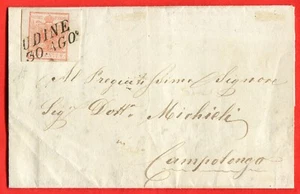 UDINE
30. AGO.
Al Pregiatissimo Signore
Sigr Dottr Michieli
Campolongo